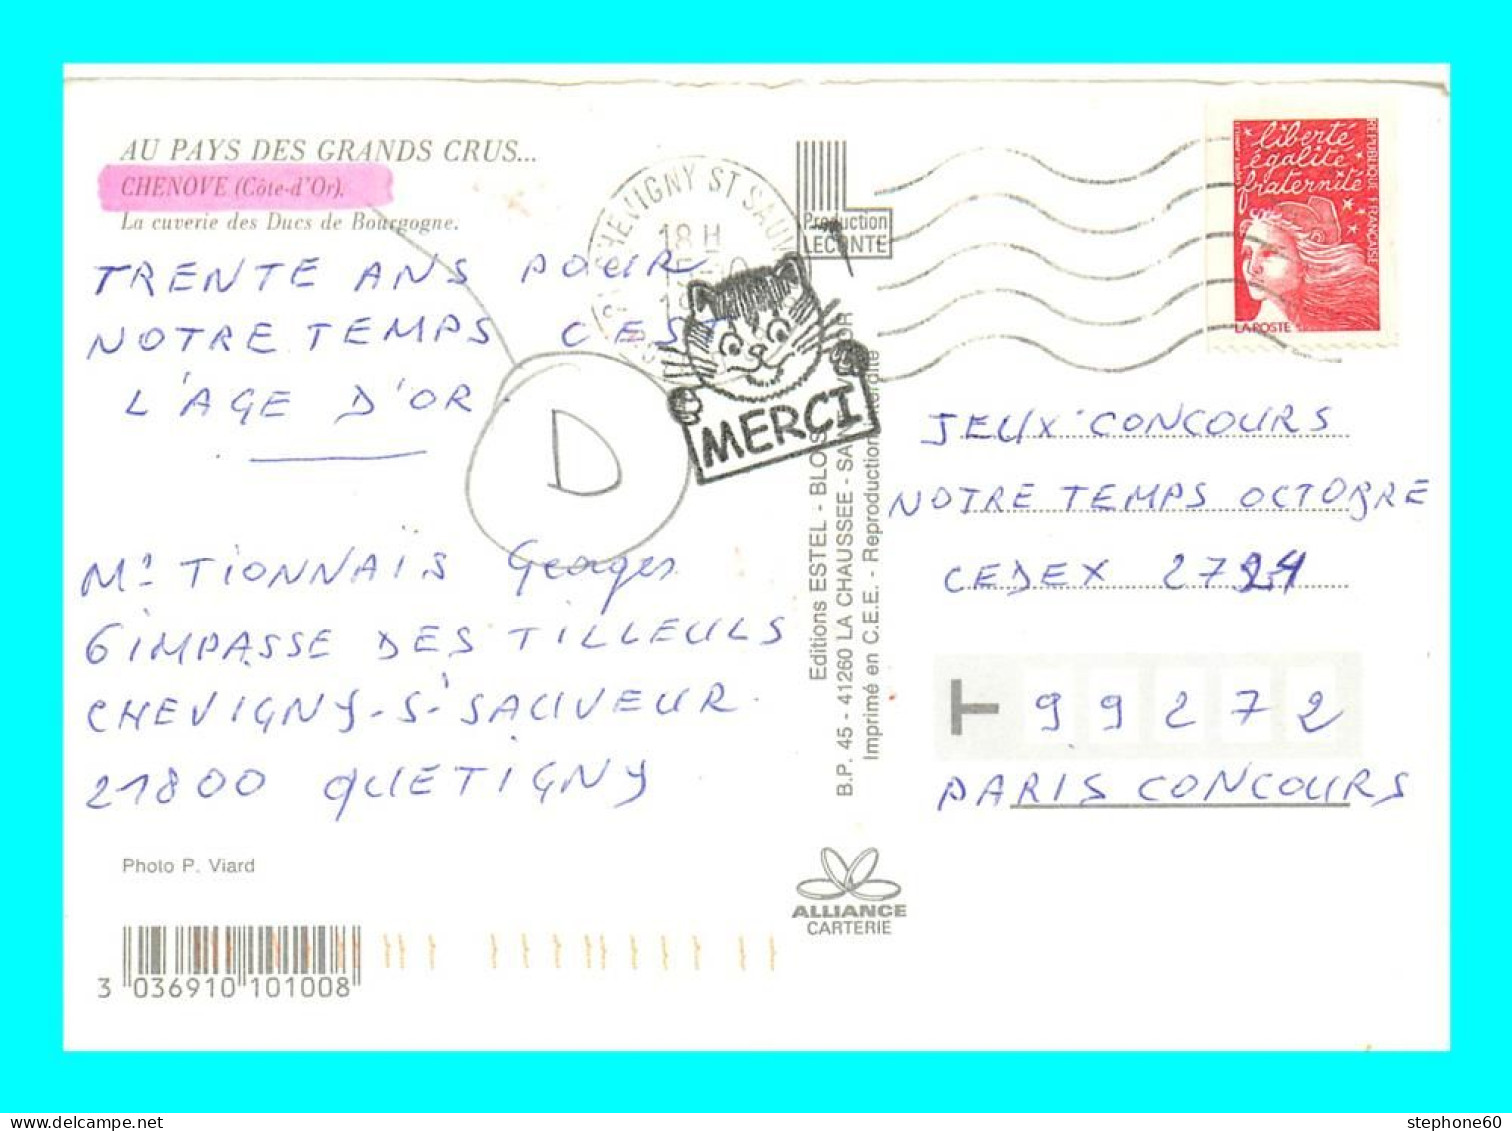 AU PAYS DES GRANDS CRUS...
CHENOVE (Côte-d'Or).
La cuverie des Ducs de Bourgogne.
TRENTE ANS POUR
NOTRE TEMPS C'EST
L'AGE D'OR
D
Mr TIONNAIS Georges
6 IMPASSE DES TILLEULS
CHEVIGNY-St SAUVEUR
21800 QUETIGNY
Photo P. Viard
3 036910 101008
CHEVIGNY ST SAUV
18 H
MERCI
Production
LECONTE
Editions ESTEL - BLOIS
B.P. 45 - 41260 LA CHAUSSEE - SA
Imprimé en C.E.E. - Reproduction interdite
ALLIANCE
CARTERIE
liberté
égalité
fraternité
REPUBLIQUE FRANÇAISE
LA POSTE
JEUX CONCOURS
NOTRE TEMPS OCTOBRE
CEDEX 2724
99272
PARIS CONCOURS
stephone60